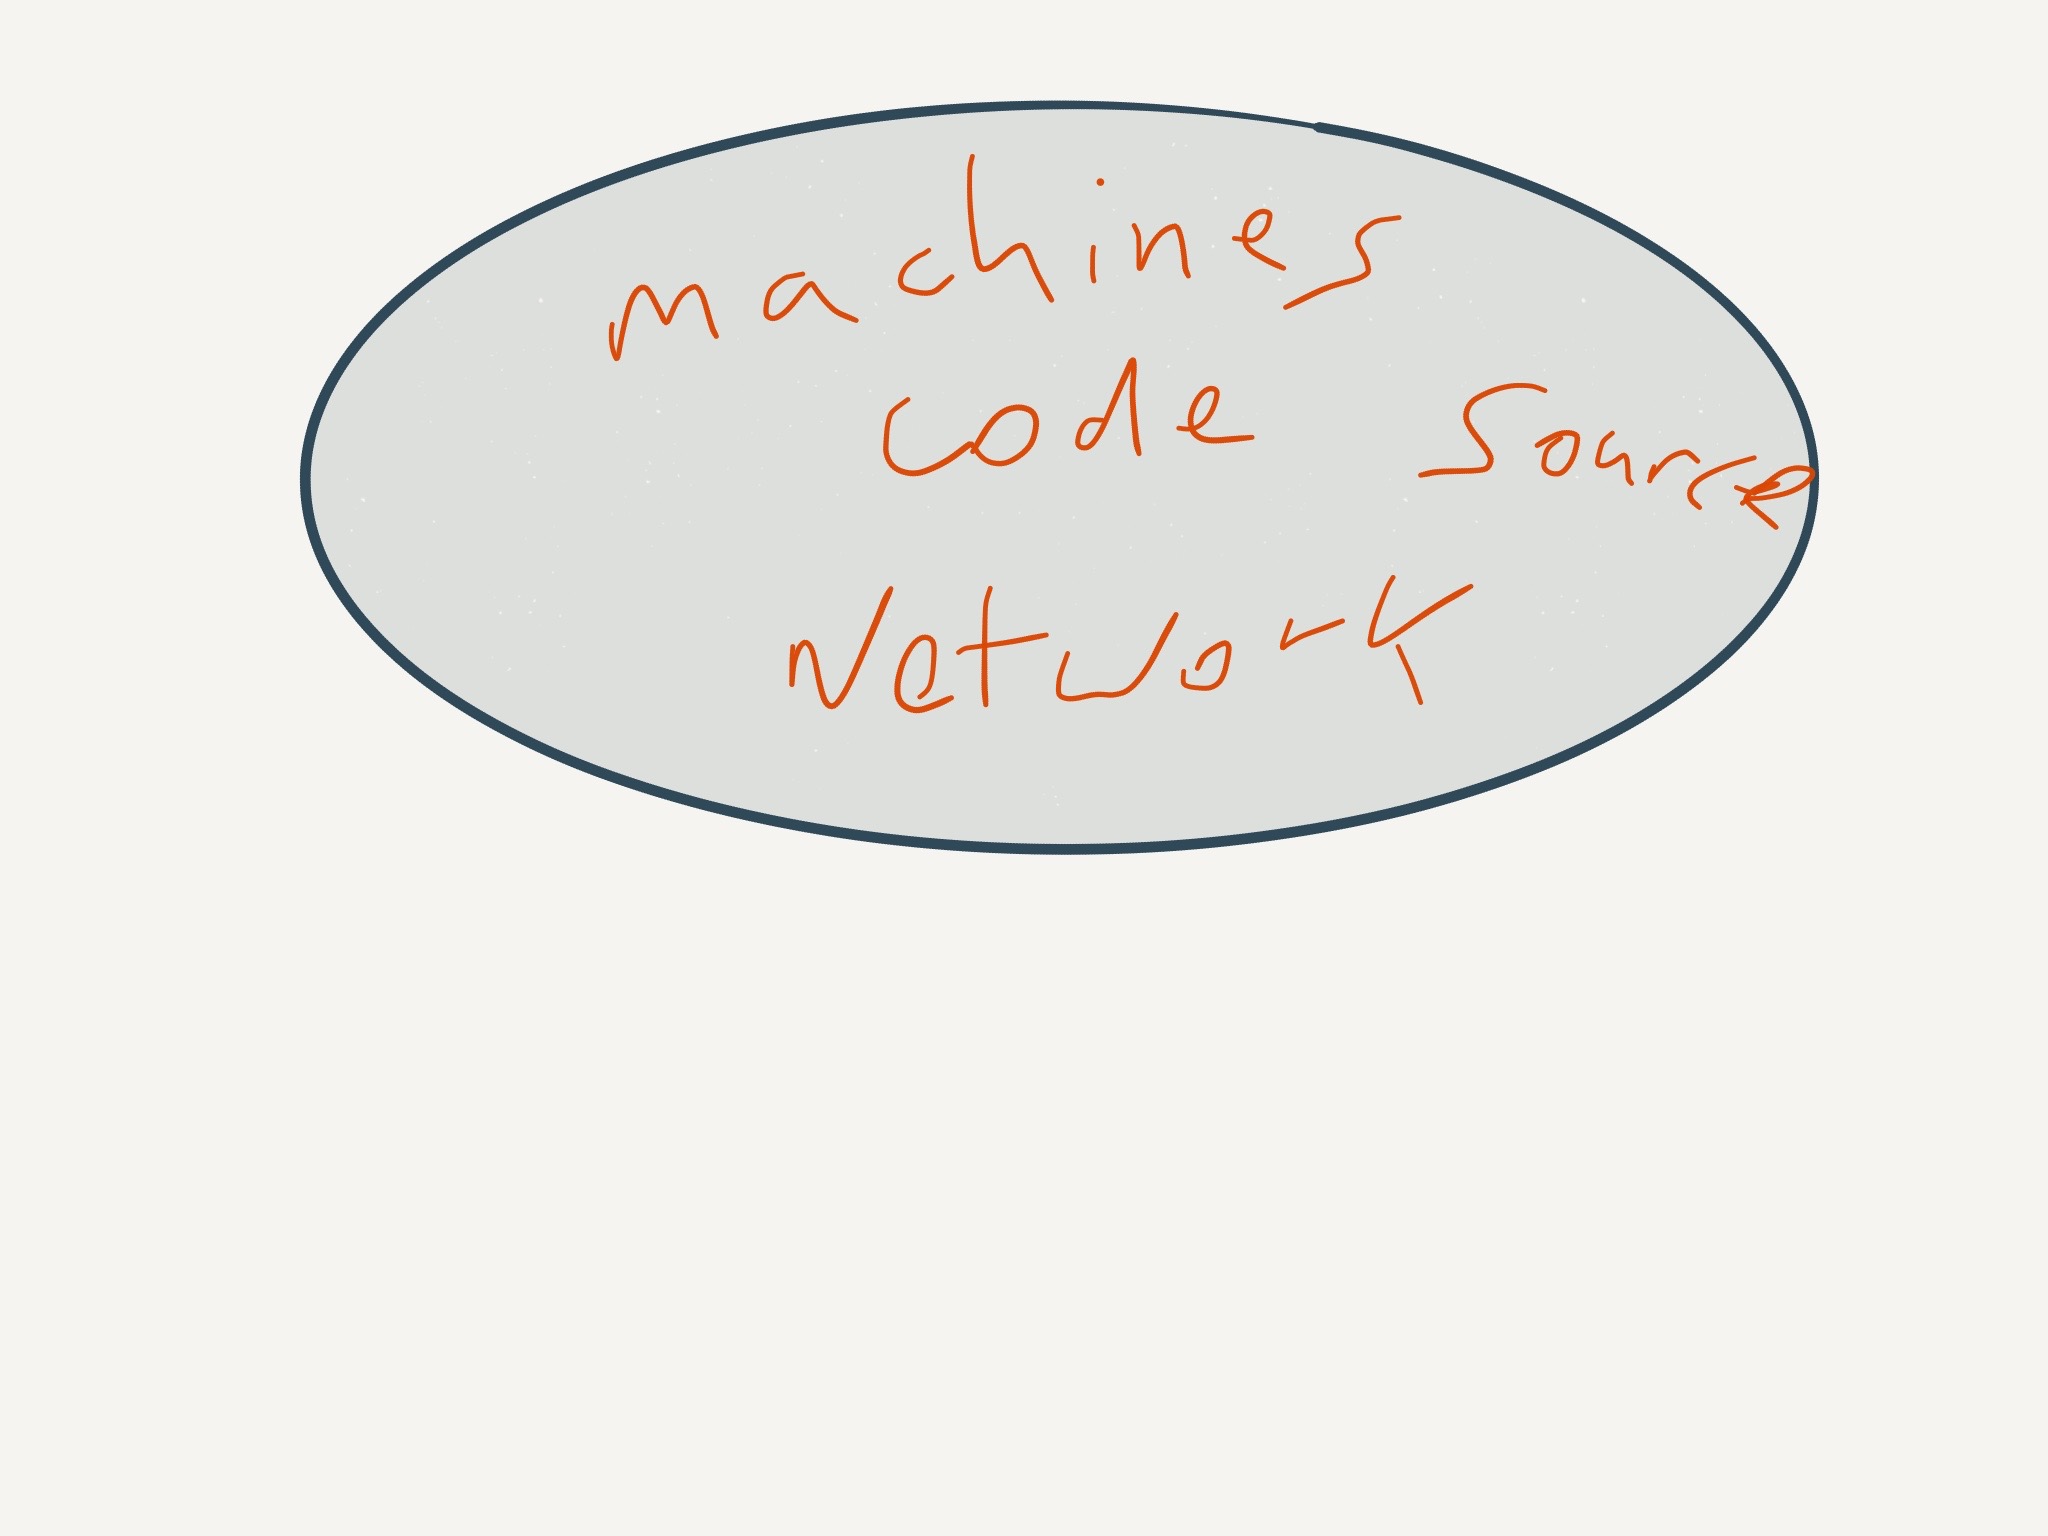 machines
code Source
Network